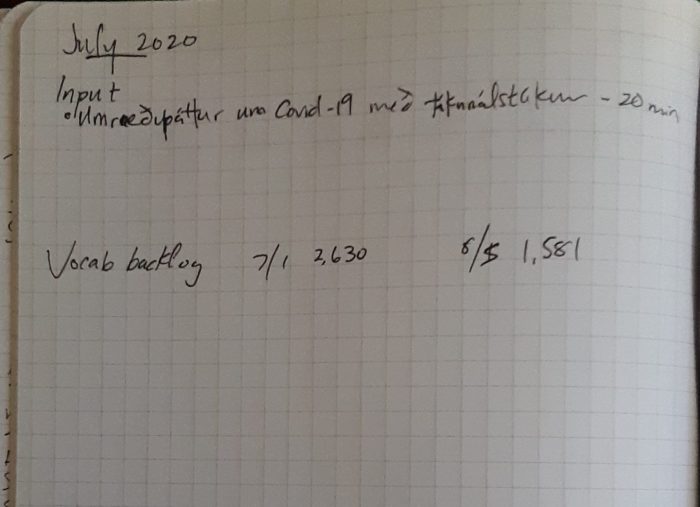 July 2020
Input
• Umræðuþáttur um Covid-19 með - 20 min
Vocab backlog 7/1 2,630 8/5 1,581